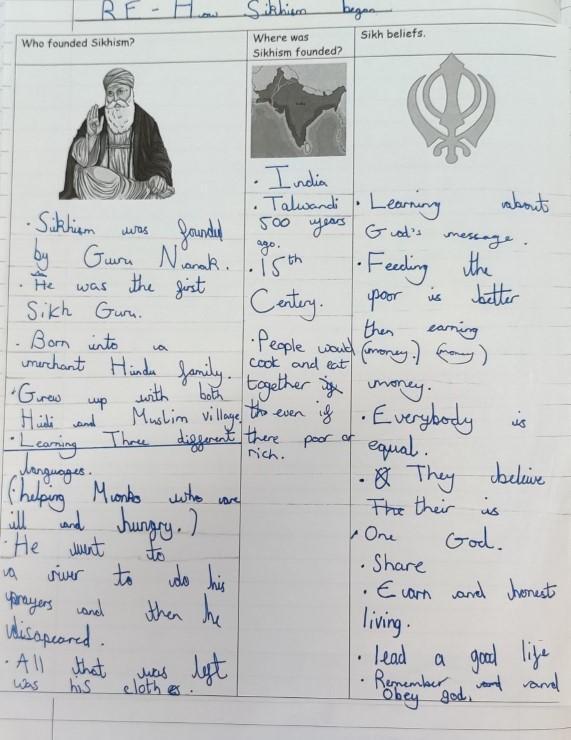 RE - How Sikhism began
Who founded Sikhism?
· Sikhism was founded
by Guru Nanak.
· He was the first
Sikh Guru.
· Born into a
merchant Hindu family.
· Grew up with both
Hidi and Muslim village.
· Learning Three different
languages.
(· helping Monks who are
ill and hungry.)
· He went to
a river to do his
prayers and then he
disapeared.
· All that was left
was his clothes.
Where was
Sikhism founded?
India
· India
· Talwandi
500 years
ago.
· 15th
Centery.
· People would
cook and eat
together
even if
there poor or
rich.
Sikh beliefs.
· Learning about
God's message.
· Feeding the
poor is better
then earning
(money.) (money)
money.
· Everybody is
equal.
· They beleive
The their is
· One God.
· Share
· Earn and honest
living.
· lead a good life
· Remember and and
Obey god.